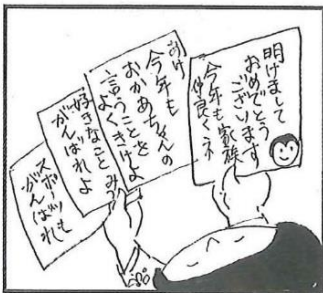 明けまして
おめでとう
ございます
今年も家族
仲良くネ
今年も
おかあちゃんの
言うことを
よくきけよ
好きなこと
がんばれよ
スポーツも
がんばれ